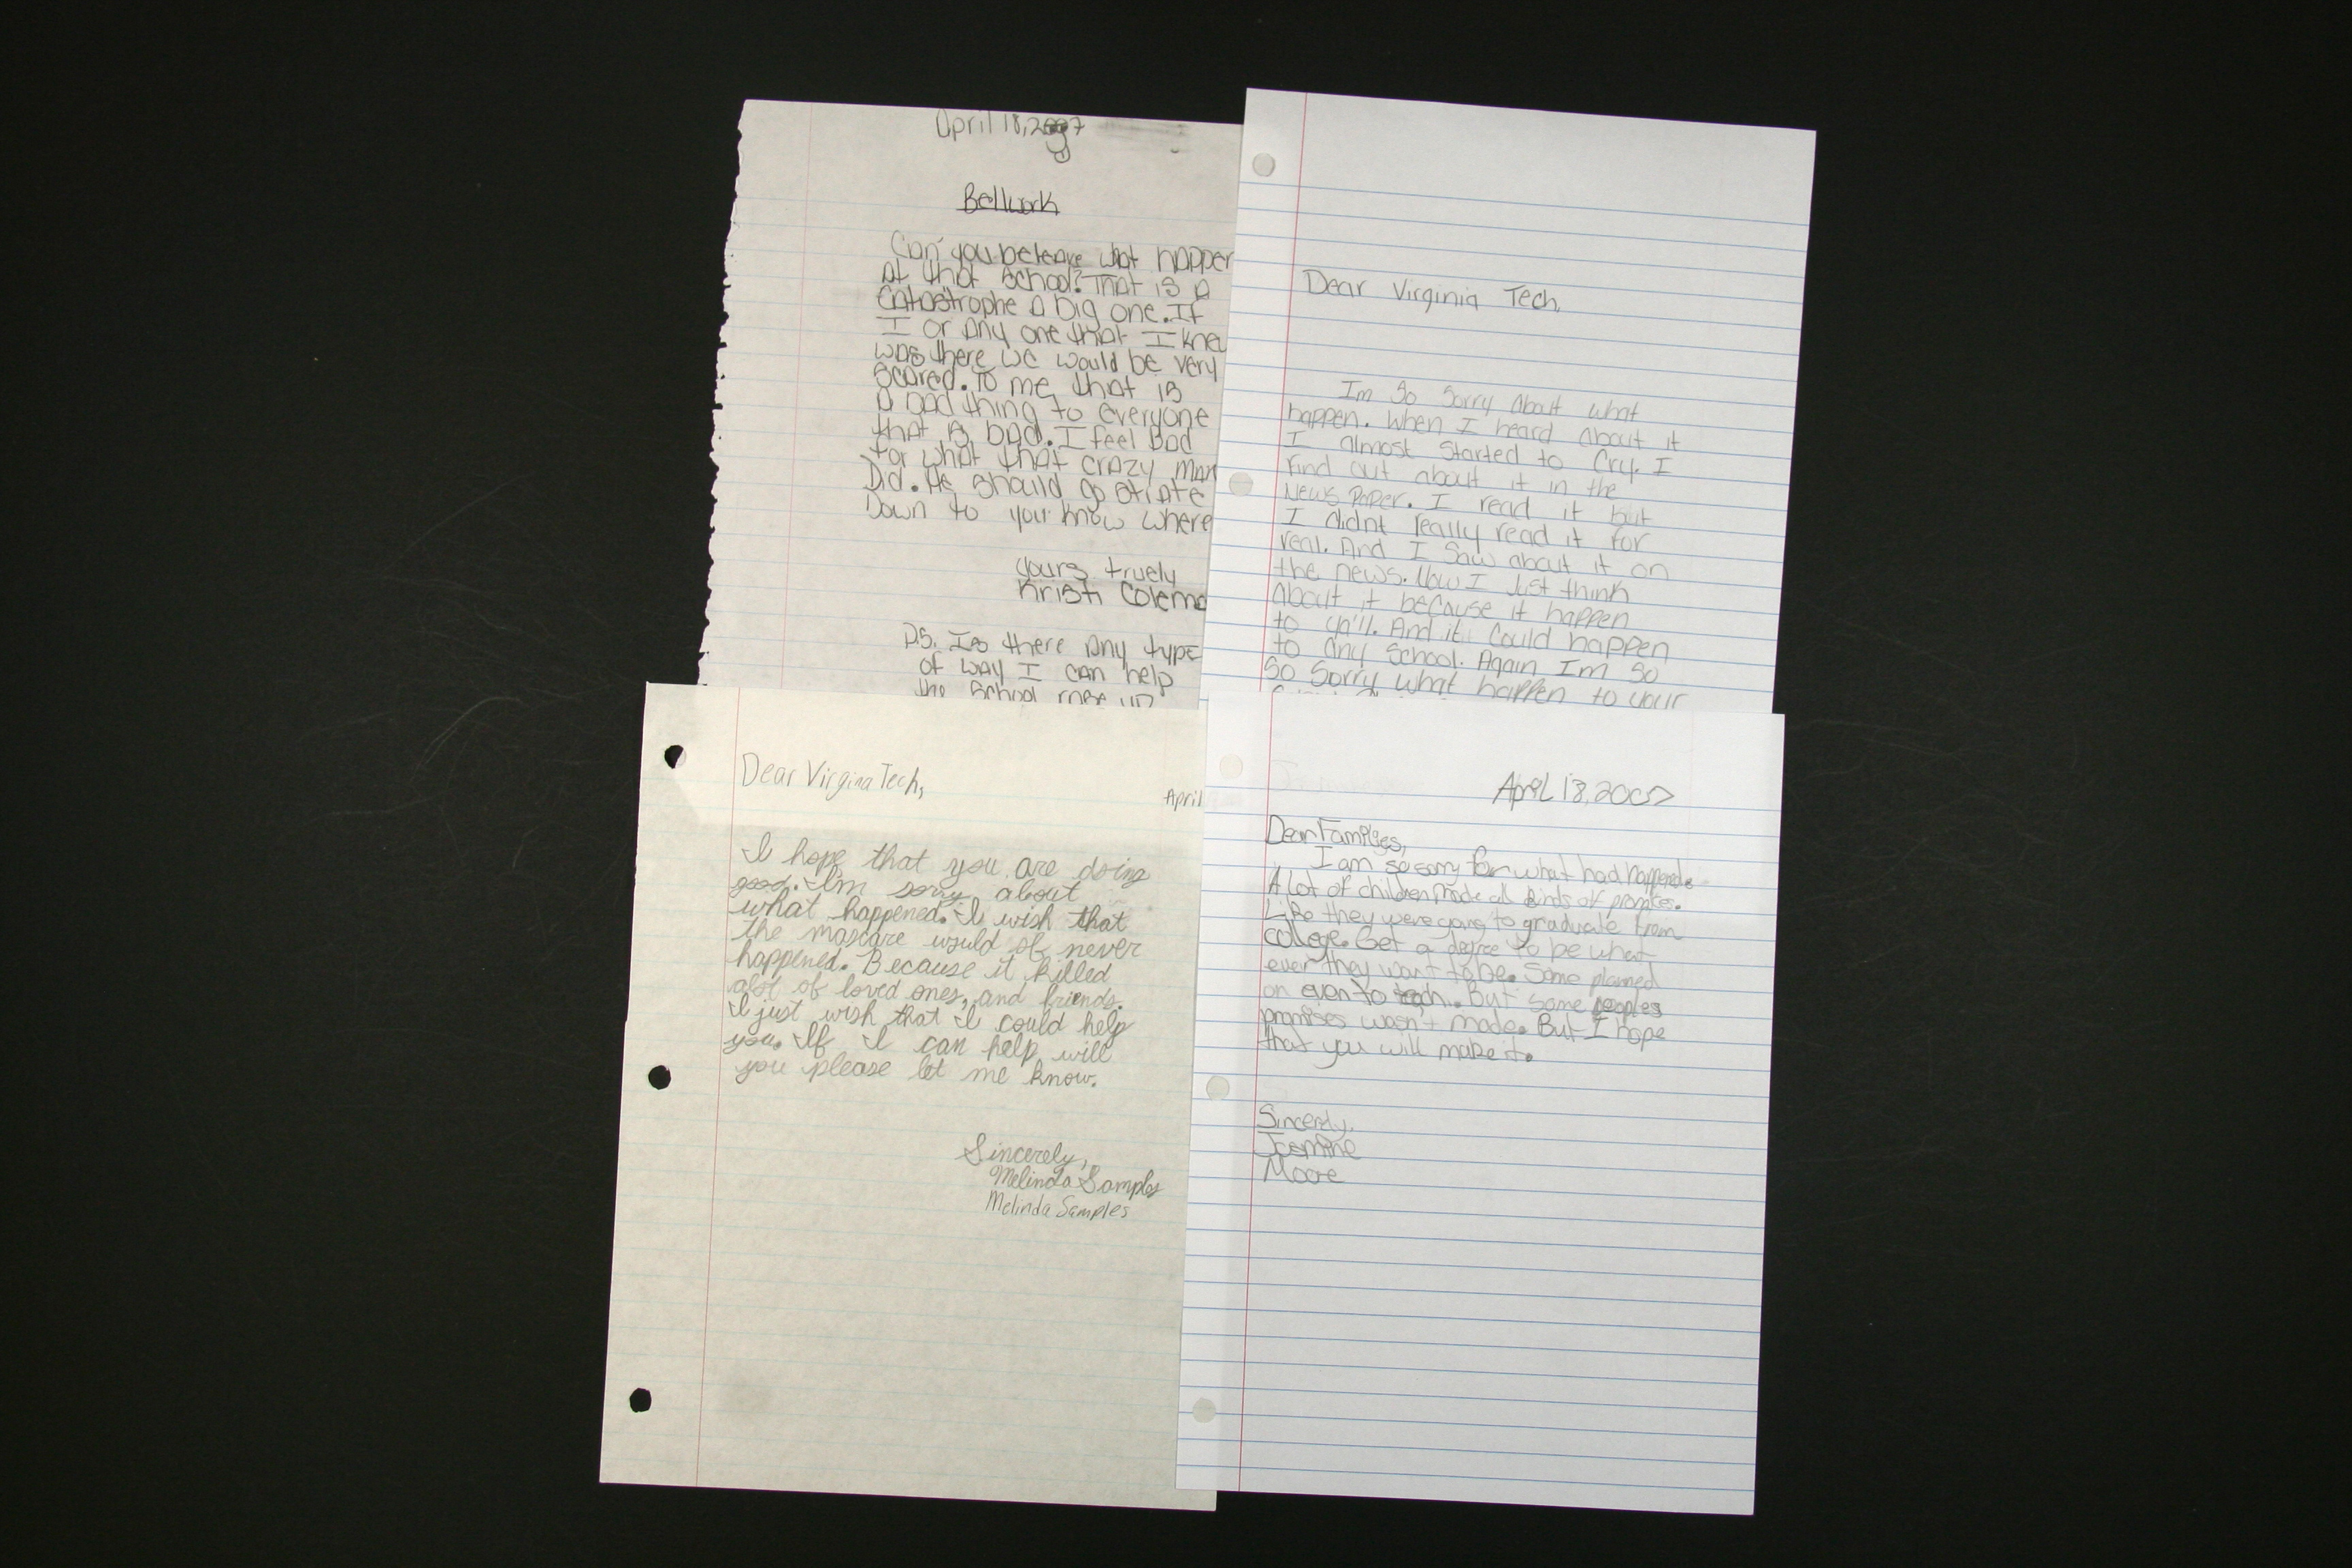 April 18, 2007
Bellwork
Can you beleave what happen
At that school? That is a
catastrophe a big one. If
I or any one that I knew
was there we would be very
scared. To me that is
a bad thing to everyone
that is bad. I feel bad
for what that crazy man
Did. He should go striate
Down to you know where
yours truely
Kristi Colema
P.S. Is there any type
of way I can help
the school rase up
Dear Virginia Tech,
Im So Sorry About what
happen. When I heard about it
I almost Started to Cry. I
find out about it in the
News Paper. I read it but
I didnt really read it for
real. And I Saw about it on
the news. Now I Just think
About it because it happen
to ya'll. And it Could happen
to any School. Again Im So
So Sorry what happen to your
Dear Virgina Tech,
April
I hope that you are doing
good. I'm sorry about
what happened. I wish that
the mascare would of never
happened. Because it killed
alot of loved ones, and friends.
I just wish that I could help
you. If I can help will
you please let me know.
Sincerely,
Melinda Samples
Melinda Samples
April 18, 2007
Dear Families,
I am so sorry for what had happend.
A lot of children made all kinds of promises.
Like they were going to graduate from
college. Get a degree to be what
ever they want to be. Some planned
on even to teach. But some peoples
promises wasn't made. But I hope
that you will make it.
Sincerly,
Jasmine
Moore